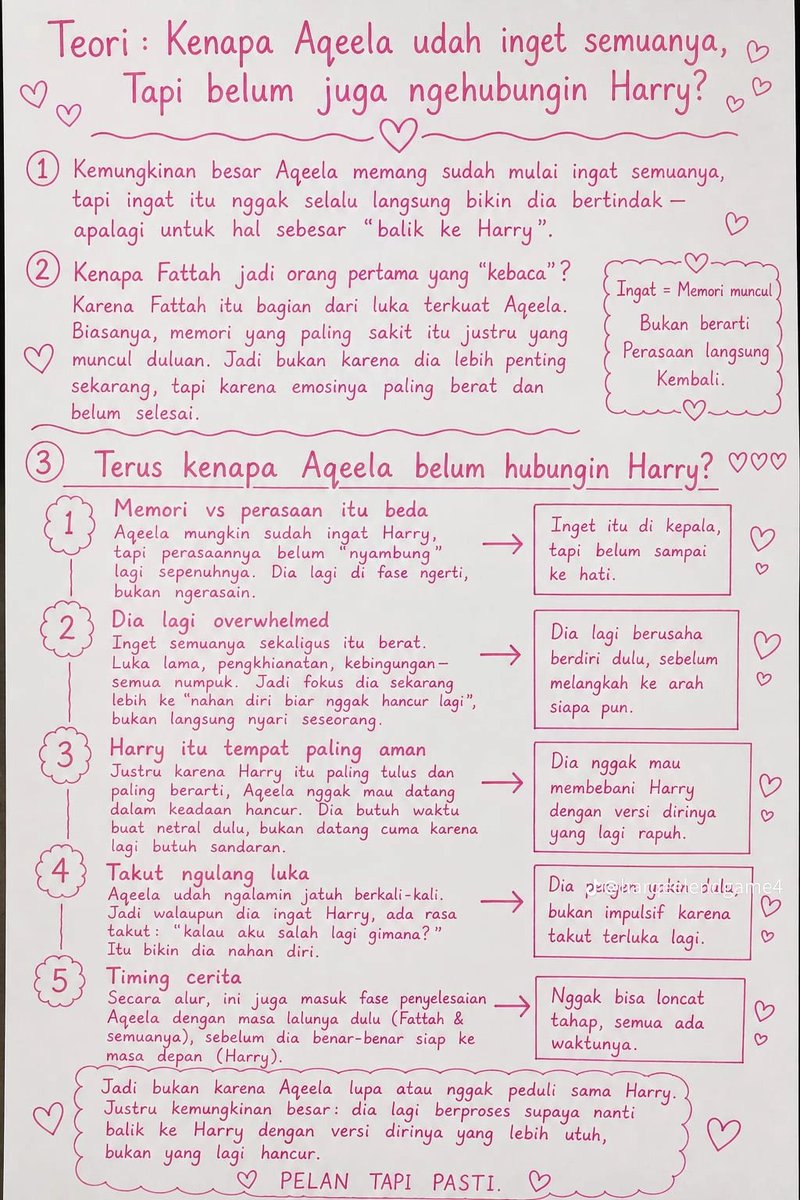 Teori : Kenapa Aqeela udah inget semuanya,
Tapi belum juga ngehubungin Harry?
1 Kemungkinan besar Aqeela memang sudah mulai ingat semuanya,
tapi ingat itu nggak selalu langsung bikin dia bertindak –
apalagi untuk hal sebesar “balik ke Harry”.
2 Kenapa Fattah jadi orang pertama yang “kebaca”?
Karena Fattah itu bagian dari luka terkuat Aqeela.
Biasanya, memori yang paling sakit itu justru yang
muncul duluan. Jadi bukan karena dia lebih penting
sekarang, tapi karena emosinya paling berat dan
belum selesai.
Ingat = Memori muncul
Bukan berarti
Perasaan langsung
Kembali.
3 Terus kenapa Aqeela belum hubungin Harry?
1 Memori vs perasaan itu beda
Aqeela mungkin sudah ingat Harry,
tapi perasaannya belum “nyambung”
lagi sepenuhnya. Dia lagi di fase ngerti,
bukan ngerasain.
→ Inget itu di kepala,
tapi belum sampai
ke hati.
2 Dia lagi overwhelmed
Inget semuanya sekaligus itu berat.
Luka lama, pengkhianatan, kebingungan–
semua numpuk. Jadi fokus dia sekarang
lebih ke “nahan diri biar nggak hancur lagi”,
bukan langsung nyari seseorang.
→ Dia lagi berusaha
berdiri dulu, sebelum
melangkah ke arah
siapa pun.
3 Harry itu tempat paling aman
Justru karena Harry itu paling tulus dan
paling berarti, Aqeela nggak mau datang
dalam keadaan hancur. Dia butuh waktu
buat netral dulu, bukan datang cuma karena
lagi butuh sandaran.
→ Dia nggak mau
membebani Harry
dengan versi dirinya
yang lagi rapuh.
4 Takut ngulang luka
Aqeela udah ngalamin jatuh berkali-kali.
Jadi walaupun dia ingat Harry, ada rasa
takut: “kalau aku salah lagi gimana?”
Itu bikin dia nahan diri.
→ Dia pengen yakin dulu,
bukan impulsif karena
takut terluka lagi.
5 Timing cerita
Secara alur, ini juga masuk fase penyelesaian
Aqeela dengan masa lalunya dulu (Fattah &
semuanya), sebelum dia benar-benar siap ke
masa depan (Harry).
→ Nggak bisa loncat
tahap, semua ada
waktunya.
Jadi bukan karena Aqeela lupa atau nggak peduli sama Harry.
Justru kemungkinan besar: dia lagi berproses supaya nanti
balik ke Harry dengan versi dirinya yang lebih utuh,
bukan yang lagi hancur.
PELAN TAPI PASTI.